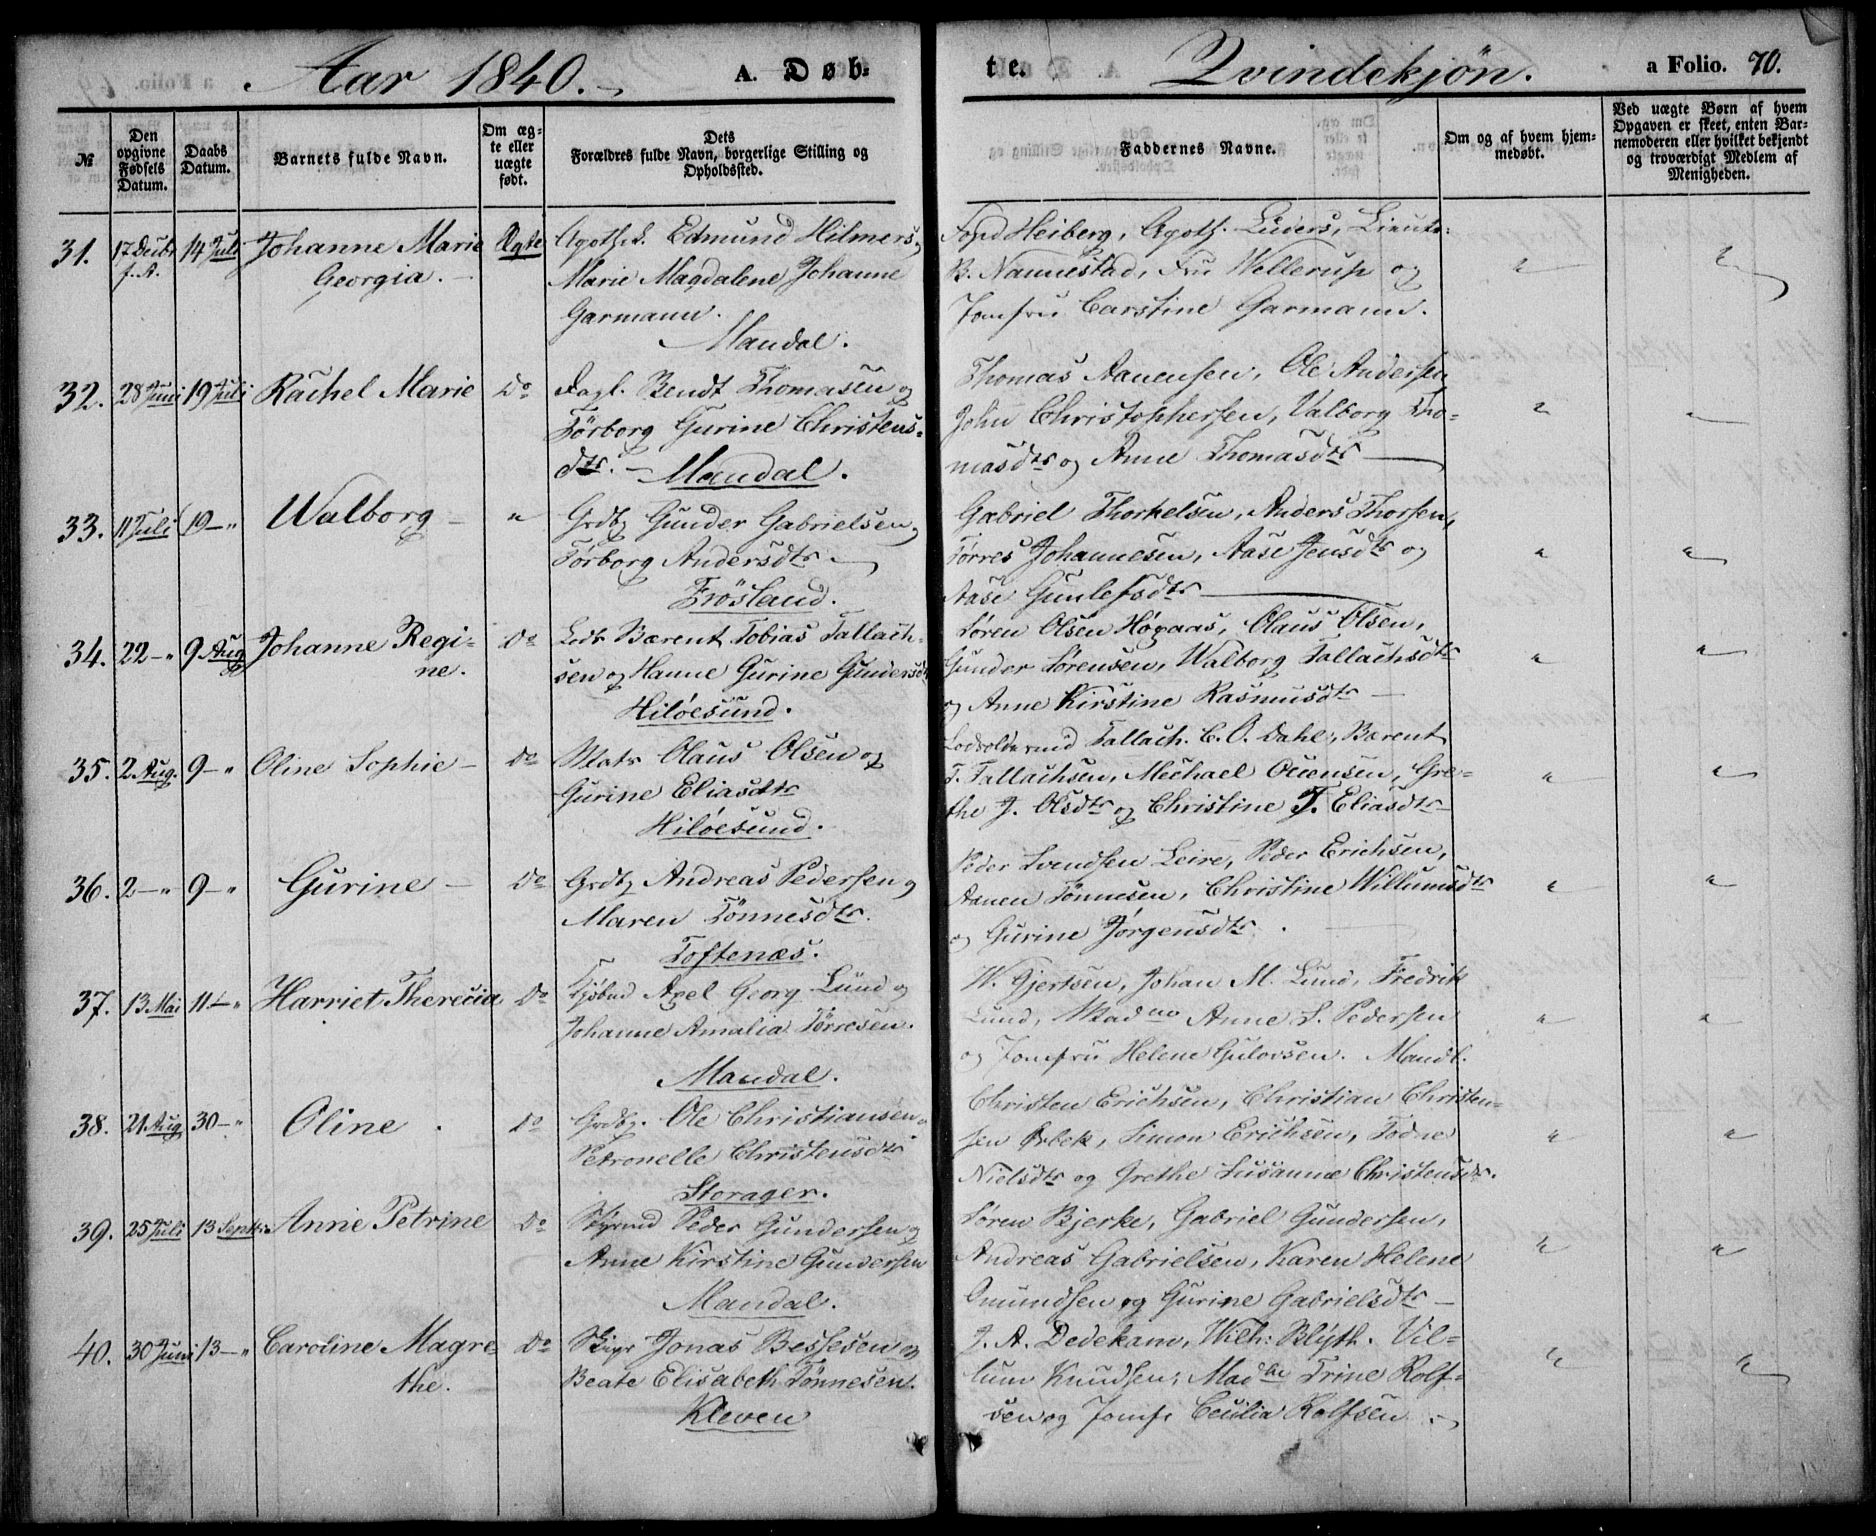 Aar 1840. A. Døb-
te. Qvindekjön. a Folio. 70.
№
Den opgivne Fødsels Datum.
Daabs Datum.
Barnets fulde Navn.
Om ægte eller uægte født.
Dets
Forældres fulde Navn, borgerlige Stilling og Opholdssted.
Faddernes Navne.
Om og af hvem hjemmedøbt.
Ved uægte Børn af hvem Opgaven er skeet, enten Barnemoderen eller hvilket bekjendt og troværdigt Medlem af Menigheden.
31. 17 Decbr f. A. 14 Juli Johanne Marie Georgia. Ægte
Apoth. Edmund Hilmers,
Marie Magdalene Johanne
Garmann.
Mandal.
Heiberg, Apoth. Lüders, Lieutn:
B. Nannestad, Fru Wellerup og
Jomfru Carstine Garmann.
32. 28 Juni 19 Juli Rachel Marie Do
Dagl. Bendt Thomasen og
Törborg Gurine Christens-
dtr. Mandal.
Thomas Aanensen, Ole Andersen
John Christophersen, Valborg Tho-
masdtr og Anne Thomasdtr
33. 11 Juli 19 — " Walborg "
Grdbr Gunder Gabrielsen,
Törborg Andersdtr
Frösland.
Gabriel Thorkelsen, Anders Thorsen,
Tørres Johannesen, Aase Jensdtr og
Aase Gunlefsdtr
34. 22 — " 9 Aug Johanne Regi-
ne. Do
Lods Bærent Tobias Tallach-
sen og Hanne Gurine Gundersdtr
Hilöesund.
Søren Olsen Høgaas, Olaus Olsen,
Gunder Sørensen, Walborg Tallachsdtr
og Anne Kirstine Rasmusdtr
35. 2 Aug. 9 — " Oline Sophie Do
Matr Olaus Olsen og
Gurine Eliasdtr
Hilöesund.
Lodsoldermd Tallach. C. O. Dahl, Bærent
T. Tallachsen, Michael Ouensen, Gre-
the J. Olsdtr og Christine T. Eliasdtr
36. 2 — " 9 — " Gurine Do
Grdbr Andreas Pedersen og
Maren Tönnesdtr
Toftenæs.
Peder Svendsen Leire, Peder Erichsen,
Aanen Tönnesen, Christine Willumsdtr
og Gurine Jörgensdtr.
37. 13 Mai 11 — " Harriet Therecia Do
Axel Georg Lund og
Johanne Amalia Törresen.
Mandal.
W. Gjertsen, Johan M. Lund, Fredrik
Lund, Madme Anne S. Pedersen
og Jomfru Helene Gulovsen. Mandl.
38. 21 Aug 30 — " Oline. Do
Grdbr. Ole Christiansen
Petronelle Christensdtr
Storager.
Christen Erichsen, Christian Christen-
sen Orbek, Simon Erichsen, Todne
Nielsdtr og Grethe Susanne Christensdtr.
39. 25 Juli 13 Septbr Anne Petrine Do
Peder Gundersen og
Anne Kirstine Gundersen
Mandal.
Søren Bjerke, Gabriel Gundersen,
Andreas Gabrielsen, Karen Helene
Omundsen og Gurine Gabrielsdtr
40. 30 Juni 13 — " Caroline Magre-
the. Do
Skipr Jonas Bessesen og
Beate Elisabeth Tönnesen.
Kleven
J. A. Dedekam, Wilh: Blyth. Vil-
lum Knudsen, Madme Trine Rolf-
sen og Jomfr Cecilia Rolfsen